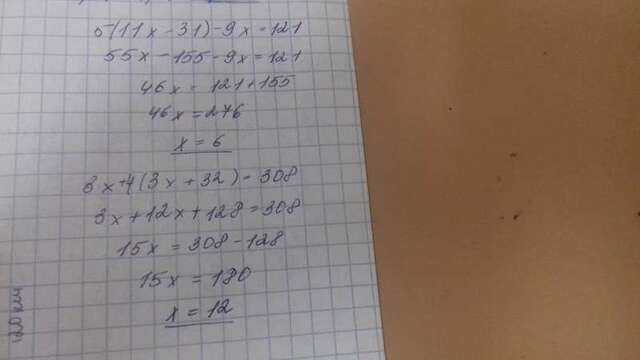 5(11x - 31) - 9x = 121
55x - 155 - 9x = 121
46x = 121 + 155
46x = 276
x = 6
3x + 4(3x + 32) = 308
3x + 12x + 128 = 308
15x = 308 - 128
15x = 180
x = 12
120 км